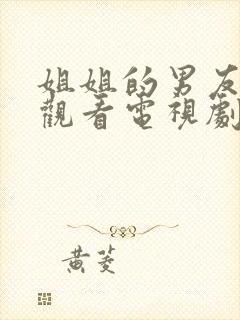 姐姐的男友
觀看電視劇
黃蓤